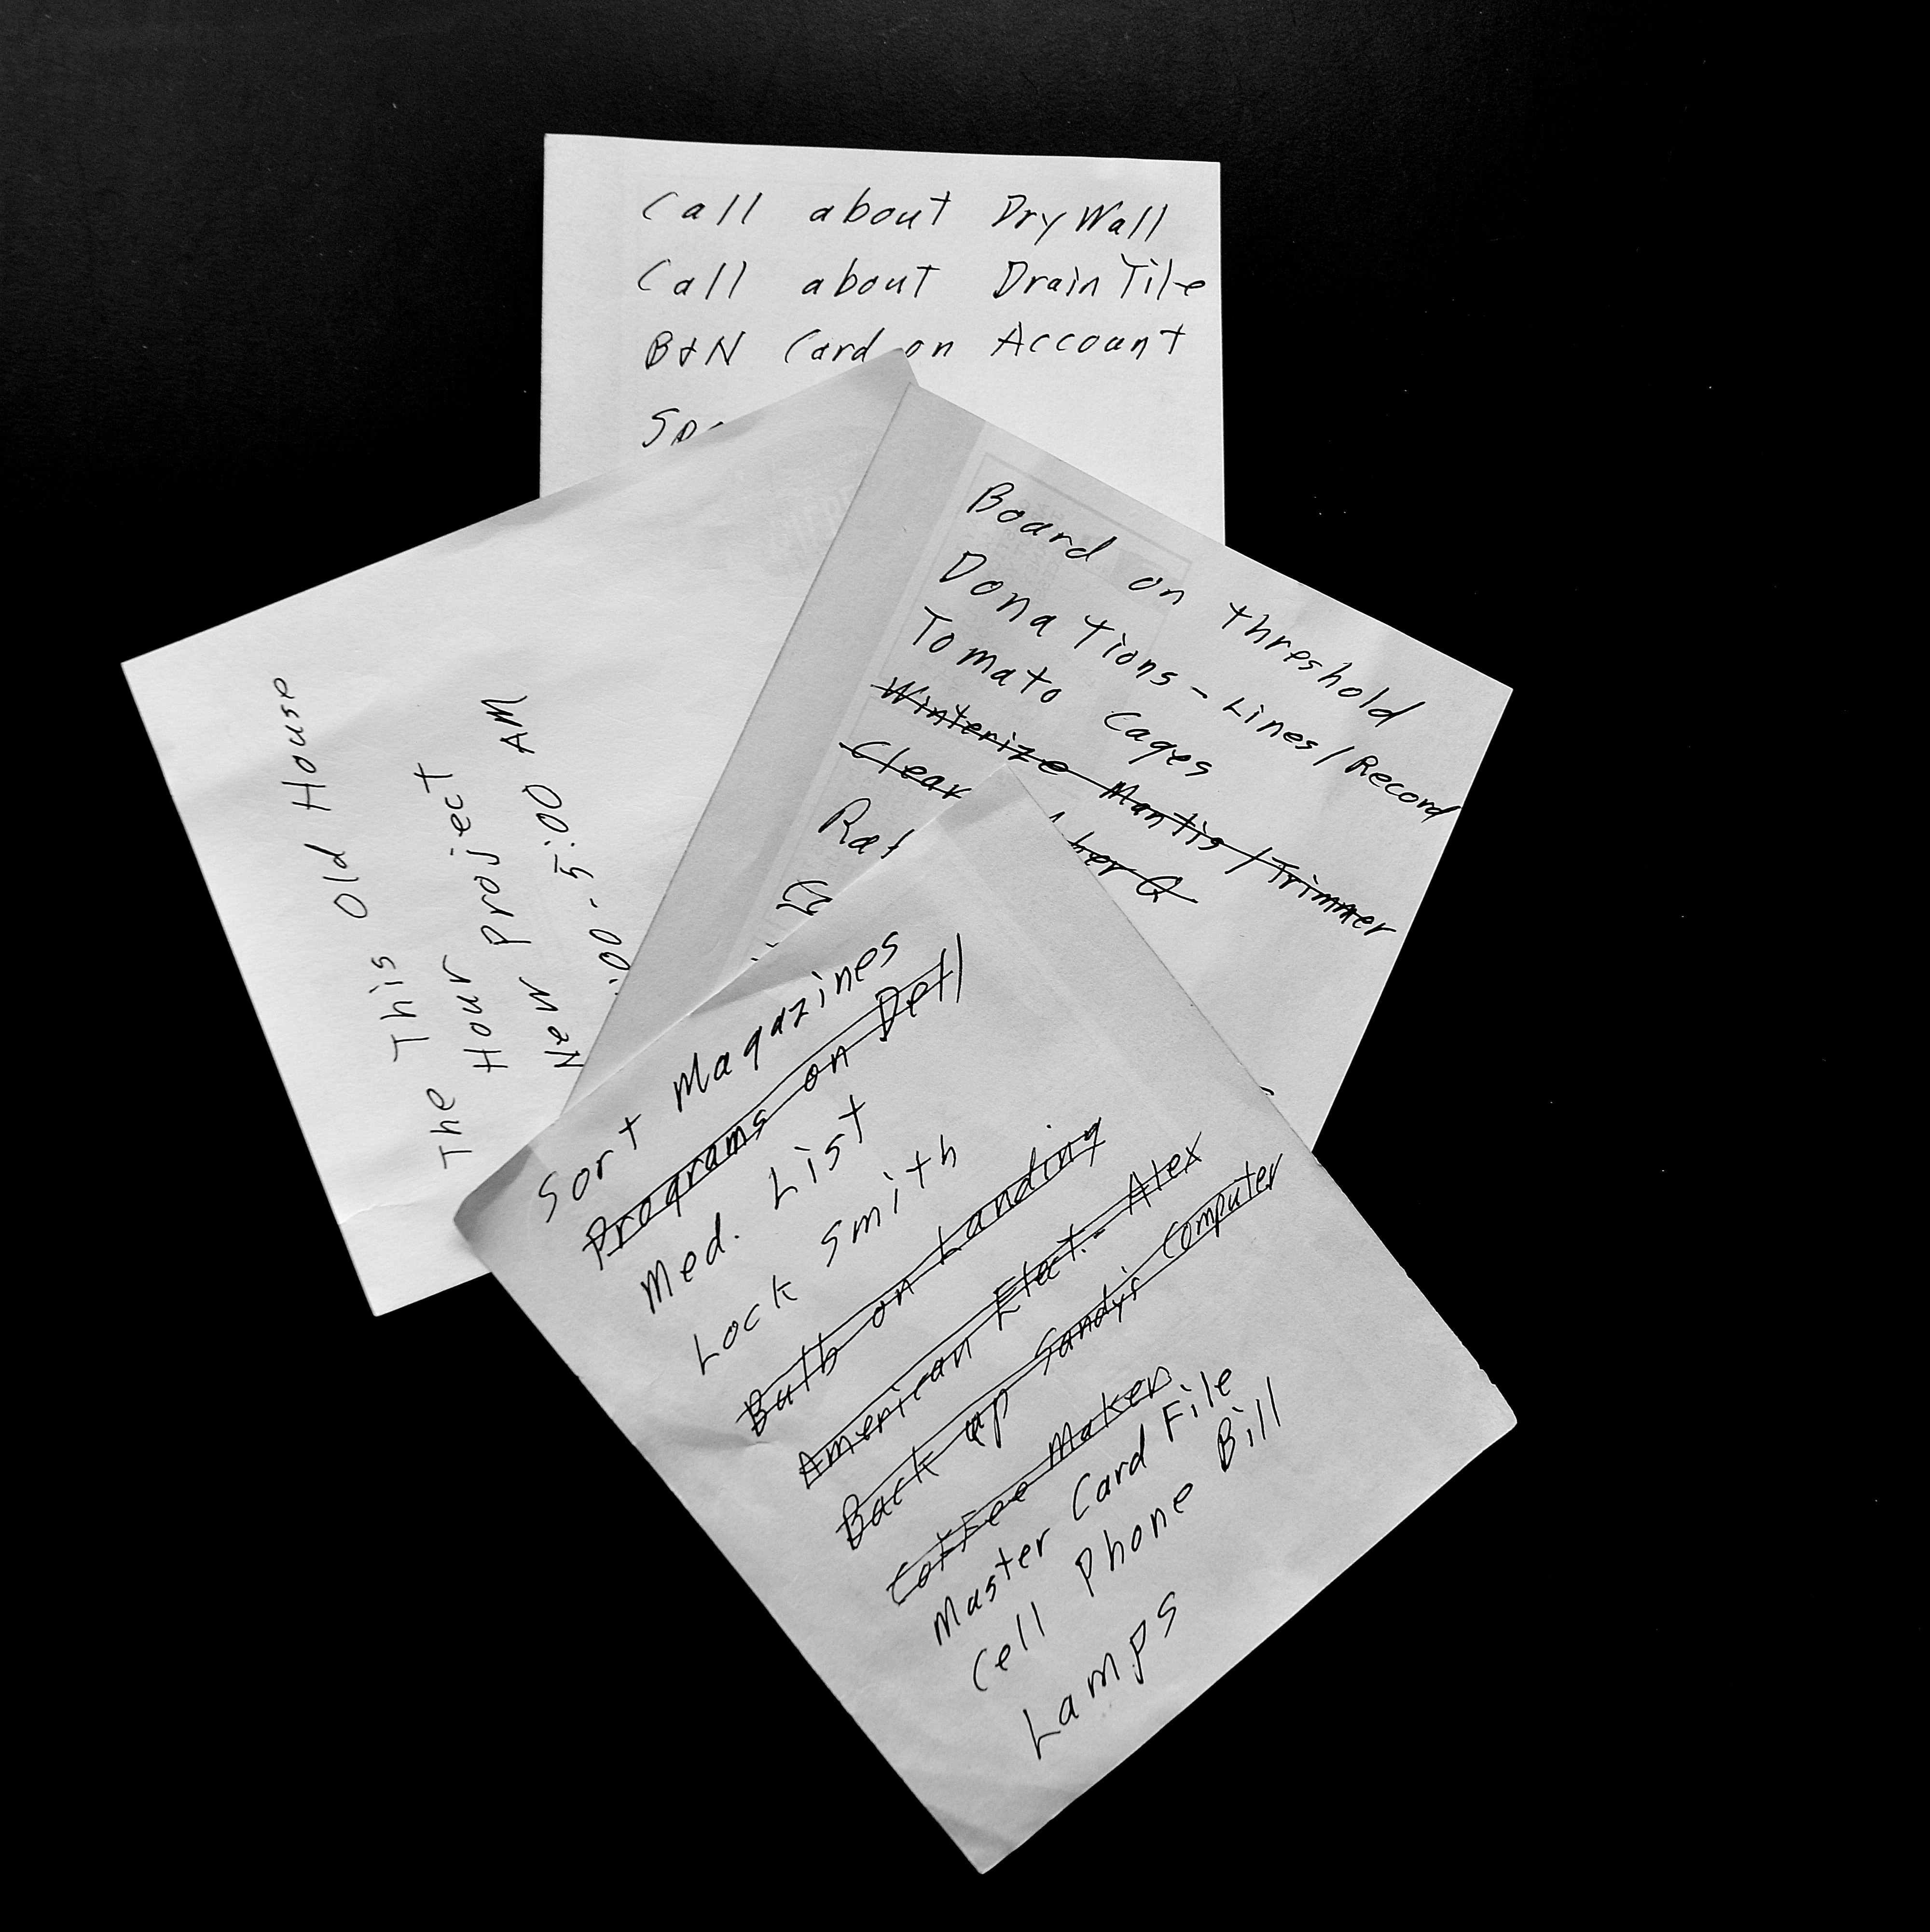 Call about DryWall
Call about Drain Tile
B&N Card on Account
The This Old House
Hour Project
New :00 - 5:00 AM
Board on threshold
Donations - Lines/Record
Tomato Cages
Winterize Mantis / Trimmer
Clear
Sort Magazines
Programs on Dell
Med. List
Lock Smith
Bulb on Landing
American Elect. - Alex
Back up Sandy's Computer
Coffee Maker
Master Card File
Cell Phone Bill
Lamps